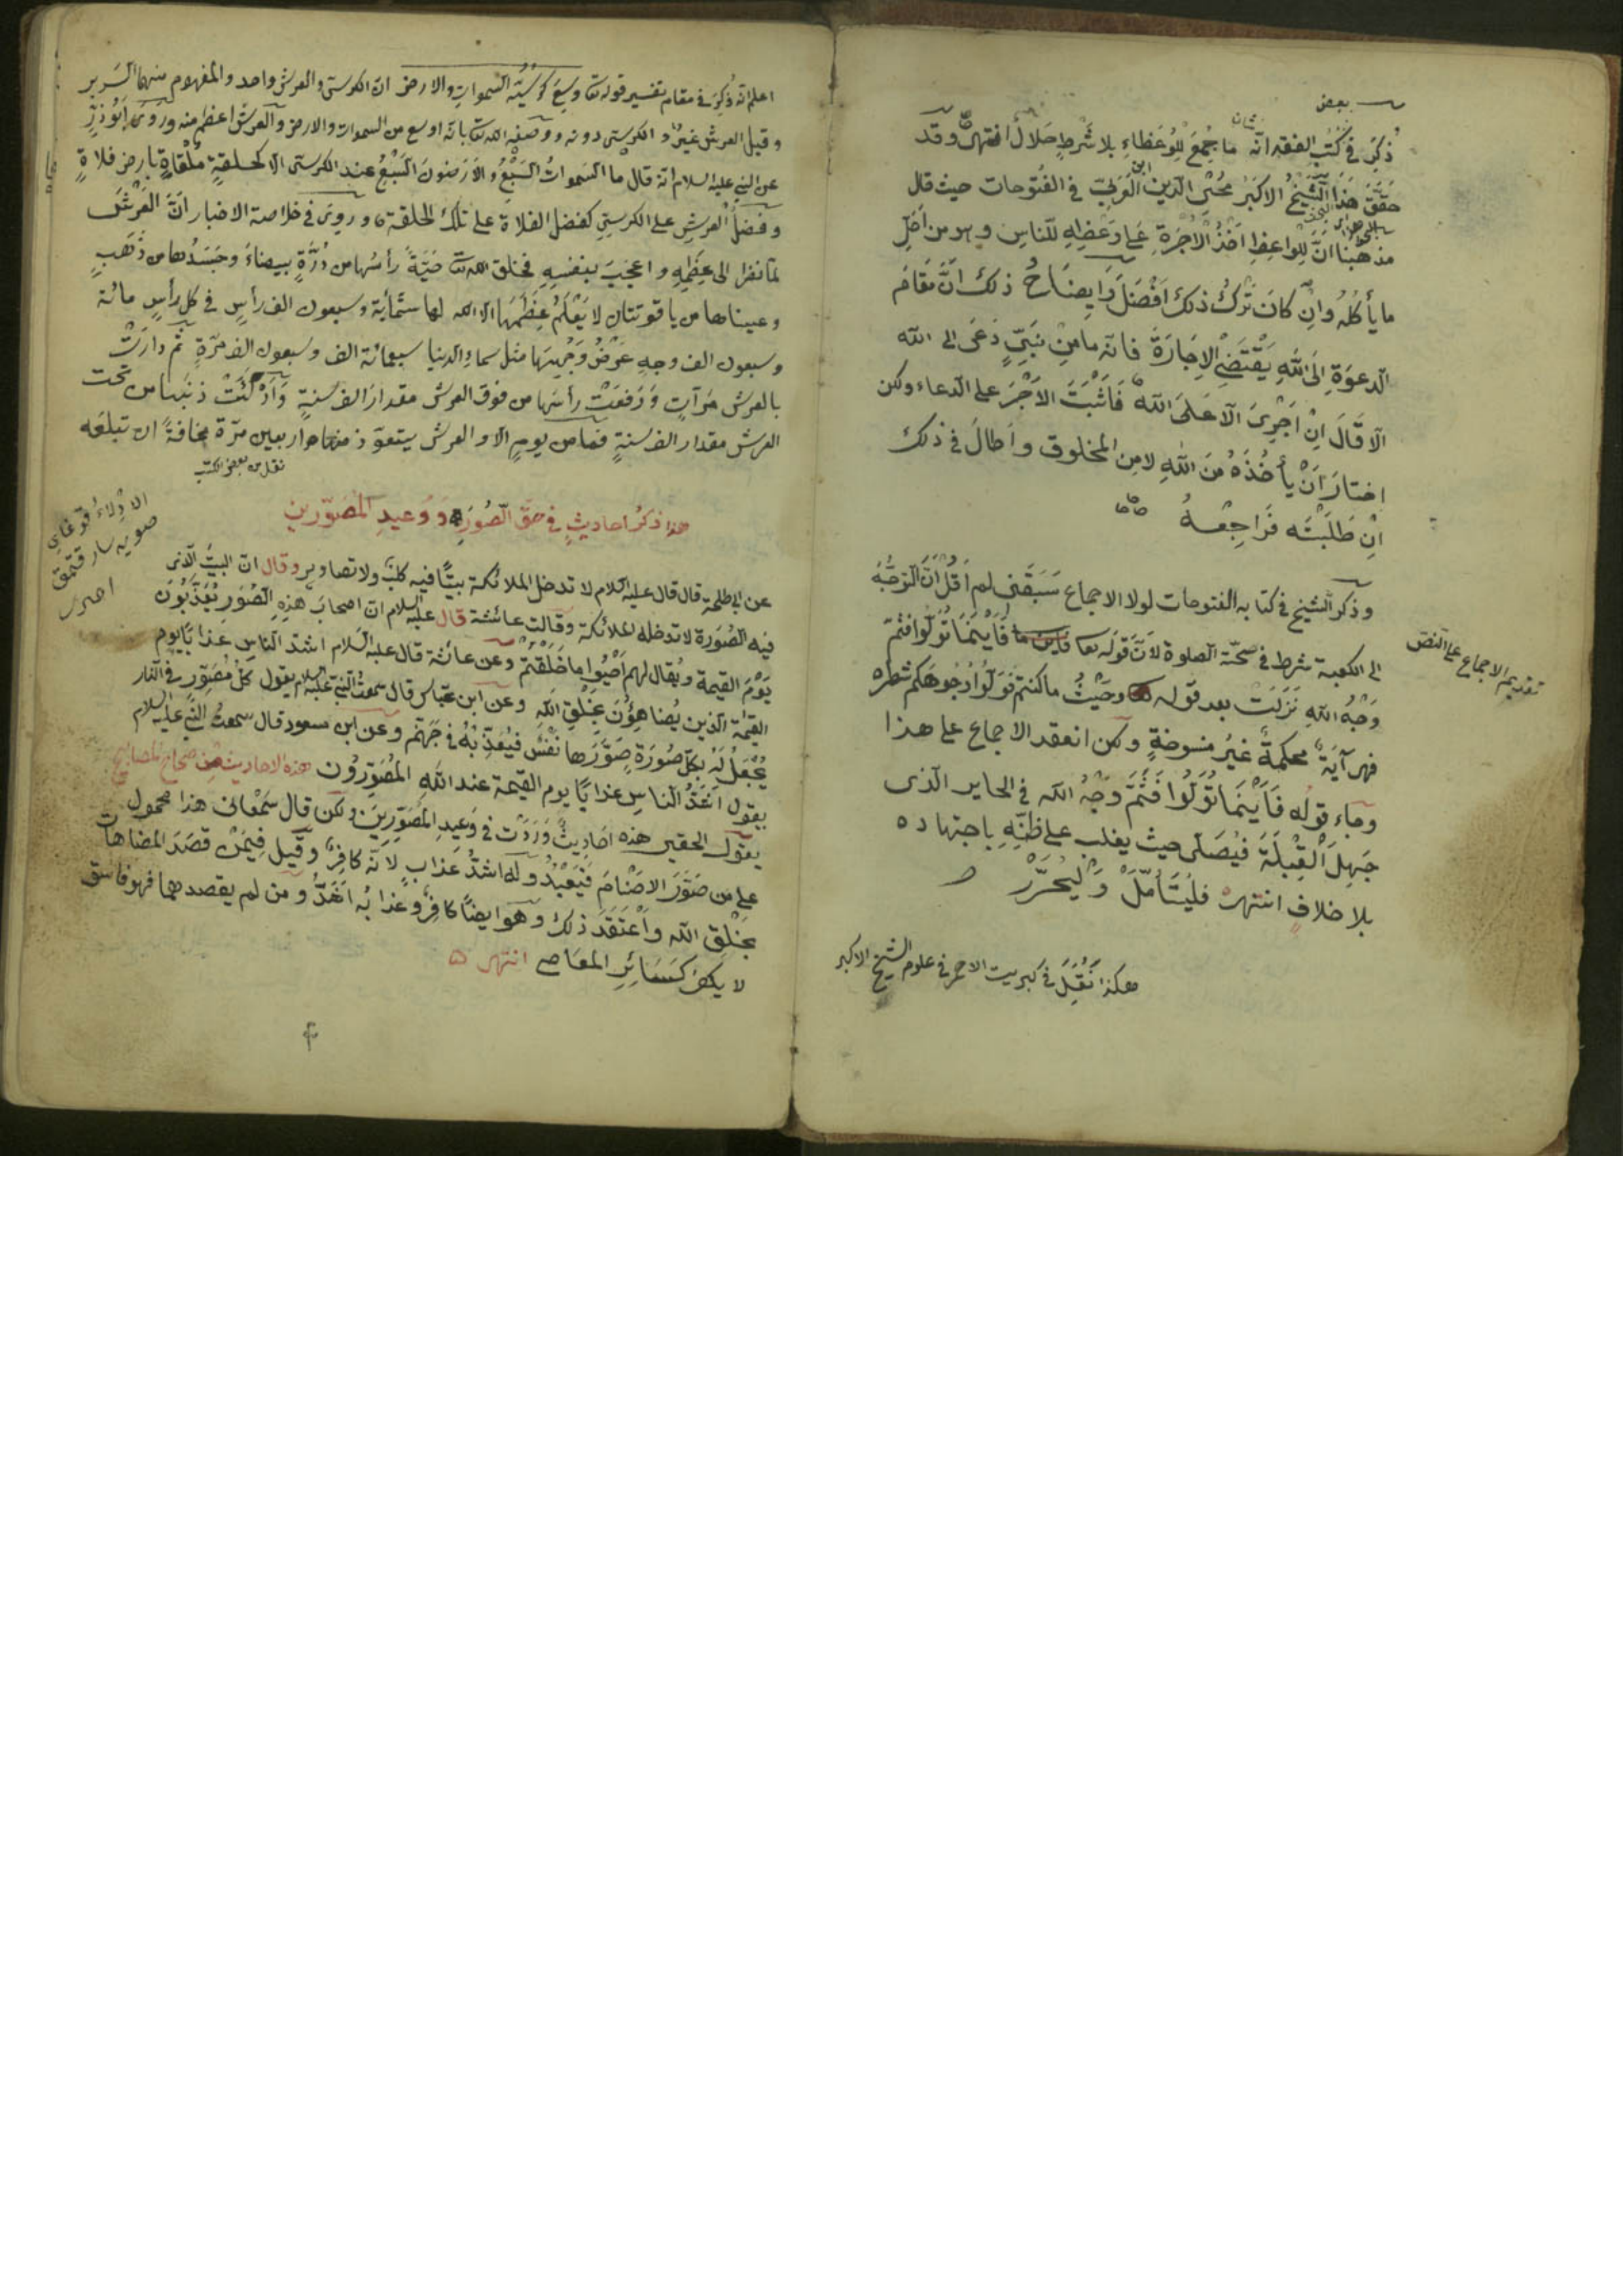 بعض
ذكر في كتب الفقه انه ما يجمع للوعظاء بلا شرط حلال انتهى وقد
حقق هذا الشيخ الاكبر محيى الدين ابن العربي في الفتوحات حيث قال
مذهبنا ان للواعظ اخذ الاجرة على وعظه للناس وهو من احل
ما يأكله وان كان ترك ذلك افضل وايضاح ذلك ان مقام
الدعوة الى الله يقتضى الاجارة فانه ما من نبي دعى الى الله
الا قال ان اجرى الا على الله فاثبت الاجر على الدعاء ولكن
اختار ان يأخذه من الله لا من المخلوق واطال في ذلك
ان طلبته فراجعه
وذكر الشيخ في كتابه الفتوحات لولا الاجماع سبقنى لم اقل ان التوجه
الى الكعبة شرط في صحة الصلوة لان قوله تعا فاينما تولوا فثم
وجه الله نزلت بعد قوله وحيث ما كنتم فولوا وجوهكم شطره
فهى آية محكمة غير منسوخة ولكن انعقد الاجماع على هذا
وجاء قوله فاينما تولوا فثم وجه الله في الحاير الذى
جهل القبلة فيصلى حيث يغلب على ظنه باجتهاده
بلا خلاف انتهى فليتأمل وليحرر
هكذا نقل في كبريت الاحمر في علوم الشيخ الاكبر
تقديم الاجماع على النص
اعلم انه ذكر في مقام تفسير قوله تعا وسع كرسيه السموات والارض ان الكرسى والعرش واحد والمفهوم منهما السرير
وقيل العرش غيره والكرسى دونه ووصفه الله تعا بانه اوسع من السموات والارض والعرش اعظم منه وروى ابو ذر
عن النبي عليه السلام انه قال ما السموات السبع والارضون السبع عند الكرسى الا كحلقة ملقاة بارض فلاة
وفضل العرش على الكرسي كفضل الفلاة على تلك الحلقة وروى في خلاصة الاخبار ان العرش
لما نظر الى عظمه واعجب بنفسه فخلق الله تعا حية رأسها من درة بيضاء وجسدها من ذهب
وعيناها من ياقوتتان لا يعلم عظمها الا الله لها ستمأية وسبعون الف رأس في كل رأس مائة
وسبعون الف وجه عرض وجهها مثل سماء الدنيا سبعمائة الف وسبعون الف مرة ثم دارت
بالعرش مرات ورفعت رأسها من فوق العرش مقدار الف سنة وادكئت ذنبها من تحت
العرش مقدار الف سنة فما من يوم الا والعرش يتعوذ منها اربعين مرة مخافة ان تبلعه
نقل من بعض الكتب
هذا ذكر احاديث في حق الصور ووعيد المصورين
عن ابى طلحة قال قال عليه السلام لا تدخل الملائكة بيتا فيه كلب ولا تصاوير وقال ان البيت الذى
فيه الصورة لا تدخله الملائكة وقالت عائشة قال عليه السلام ان اصحاب هذه الصور يعذبون
يوم القيمة ويقال لهم احيوا ما خلقتم وعن عائشة قال عليه السلام اشد الناس عذابا يوم
القيمة الذين يضاهؤن بخلق الله وعن ابن عباس قال سمعت النبي عليه السلام يقول كل مصور في النار
يجعل له بكل صورة صورها نفس فيعذبه في جهنم وعن ابن مسعود قال سمعت النبي عليه السلام
يقول اشد الناس عذابا يوم القيمة عند الله المصورون هذه الاحاديث من صحاح المصابيح
يقول الحقير هذه احاديث وردت في وعيد المصورين ولكن قال سمعانى هذا محمول
على من صور الاصنام فيعبد وله اشد عذاب لانه كافر وقيل فيمن قصد المضاهات
بخلق الله واعتقد ذلك وهو ايضا كافر وعذابه اشد ومن لم يقصدهما فهو فاسق
لا يكفر كسائر المعاصى انتهى